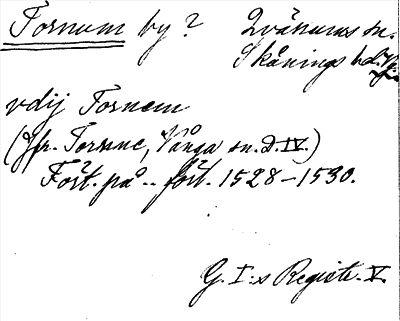 Fornum by? Kvänums sn.
Skånings hd.
vdij Fornem
(Jfr. Forsne, Vånga sn. d. IV.)
Fört. på .. fört. 1528–1530.
G. I:s Registr. V.